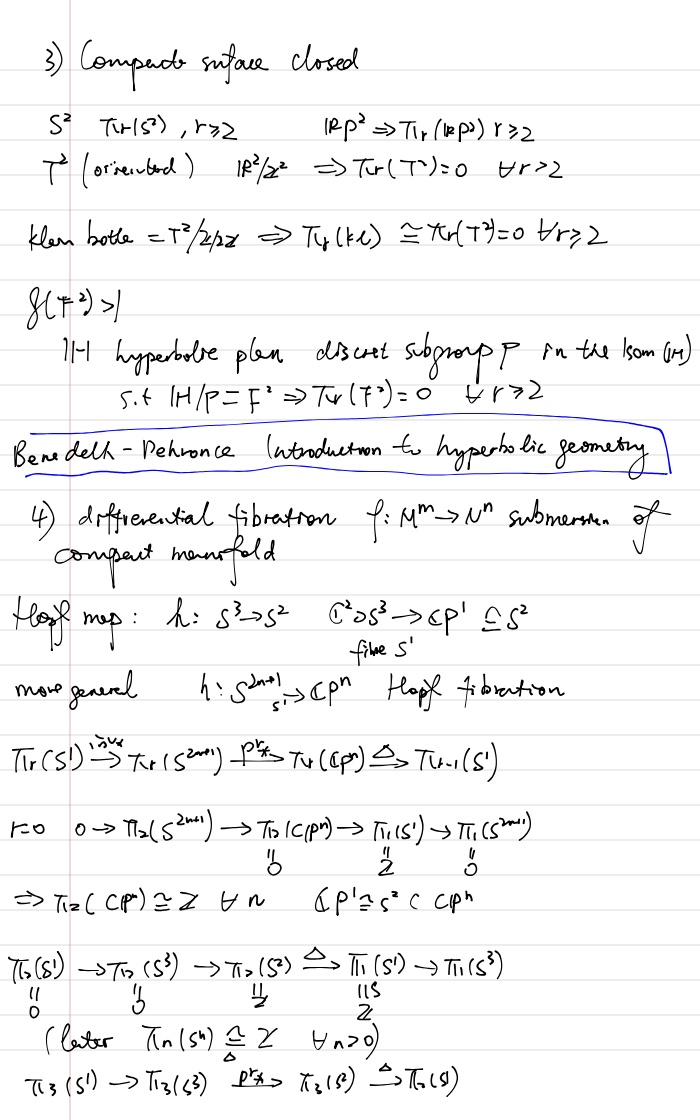 3) Compacte surface closed
S² π_r(S²), r≥2 ℝP² ⇒ π_r(ℝP²) r≥2
T² (oriented) ℝ²/ℤ² ⇒ π_r(T²)=0 ∀r≥2
klein bottle = T²/ℤ/2ℤ ⇒ π_r(kl) ≅ π_r(T²)=0 ∀r≥2
g(F²)>1
ℍ hyperbolic plan discret subgroup Γ in the Isom(ℍ)
s.t ℍ/Γ = F² ⇒ π_r(F²)=0 ∀ r≥2
Introduction to hyperbolic geometry
4) differential fibration f: M^m → N^n submersion of
compact manifold
Hopf map: h: S³→S² ℂ²⊃S³→ℂP¹ ≅ S²
fibre S¹
more general h: S^{2n+1} →_{S¹} ℂP^n Hopf fibration
π_r(S¹) → π_r(S^{2n+1}) →^{pr_*} π_r(ℂP^n) →^Δ π_{r-1}(S¹)
r=0 0 → π_2(S^{2n+1}) → π_2(ℂP^n) → π_1(S¹) → π_1(S^{2n+1})
= 0 = ℤ = 0
⇒ π_2(ℂP^n) ≅ ℤ ∀ n ℂP¹ ≅ S² ⊂ ℂP^n
π_2(S¹) → π_2(S³) → π_2(S²) →^Δ π_1(S¹) → π_1(S³)
= 0 = 0 = ℤ ≅ ℤ
(later π_n(S^n) ≅ ℤ ∀n>0)
π_3(S¹) → π_3(S³) →^{pr_*} π_3(S²) →^Δ π_2(S¹)